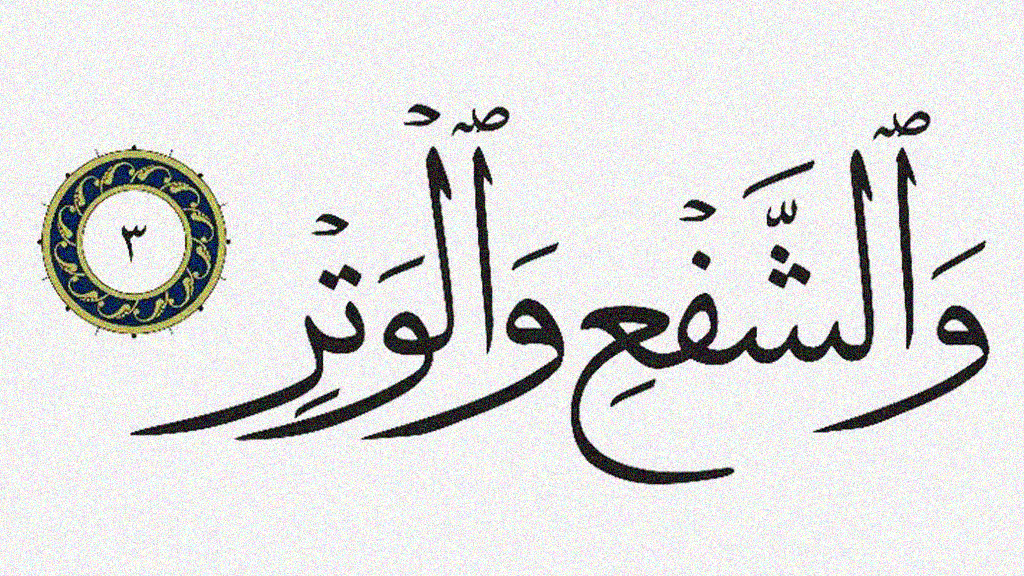 وَٱلشَّفۡعِ وَٱلۡوَتۡرِ ٣